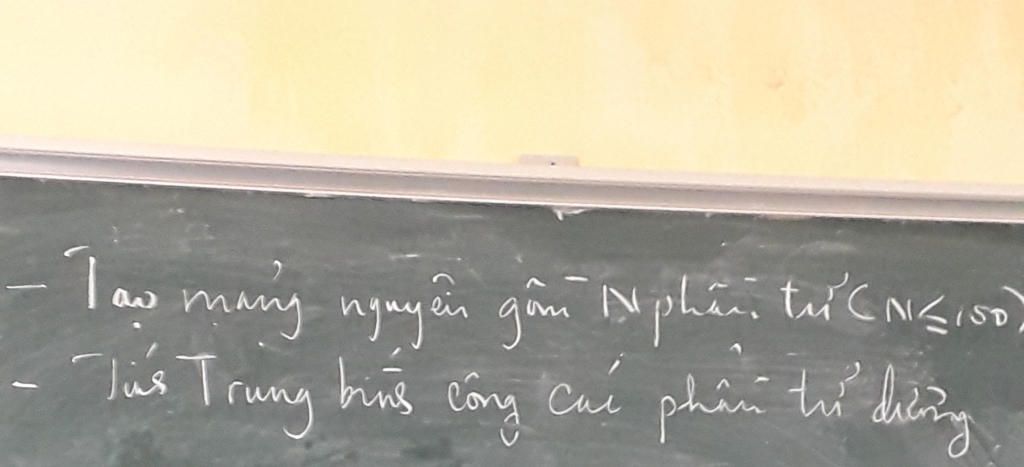 - Tạo mảng nguyên gồm N phần tử (N ≤ 150)
- Tính Trung bình cộng các phần tử dương